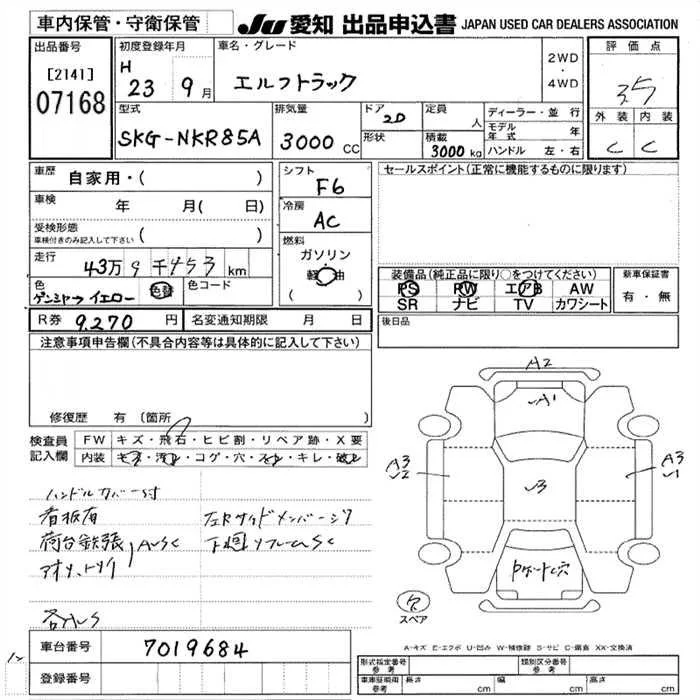 車内保管・守衛保管
JU 愛知 出品申込書 JAPAN USED CAR DEALERS ASSOCIATION
出品番号
[2141]
07168
初度登録年月
H 23 9月
車名・グレード
エルフトラック
2WD
・
4WD
評価点
3.5
外装 内装
C C
型式
SKG-NKR85A
排気量
3000 CC
ドア
2D
形状
定員
人
積載
3000 kg
ディーラー・並行
モデル年式 年
ハンドル 左・右
車歴
自家用・( )
車検
年 月( 日)
受検形態
車検付きのみ記入して下さい ( )
走行
43万9千453 km
色
イエロー
色替
色コード
R券 9,270 円
名変通知期限 月 日
シフト
F6
冷房
AC
燃料
ガソリン
軽油
( )
セールスポイント(正常に機能するものに限ります)
装備品(純正品に限り○をつけてください)
PS PW エアB AW
SR ナビ TV カワシート
新車保証書
有・無
後日品
注意事項申告欄(不具合内容等は具体的に記入して下さい)
修復歴 有 〔箇所
検査員
記入欄
FW キズ・飛石・ヒビ割・リペア跡・X要
内装 キズ・汚れ・コゲ・穴・スレ・キレ・破れ
ハンドルカバー付
看板有
荷台鉄張
A2
A1
A3
2
3
A3
1
Pゲートヒ穴
スペア
A-キズ E-エクボ U-凹み W-補修跡 S-サビ C-腐食 XX-交換済
車台番号 7019684
登録番号
型式指定番号
参考
類別区分番号
参考
車庫証明用
参考
長さ cm 幅 cm 高さ cm